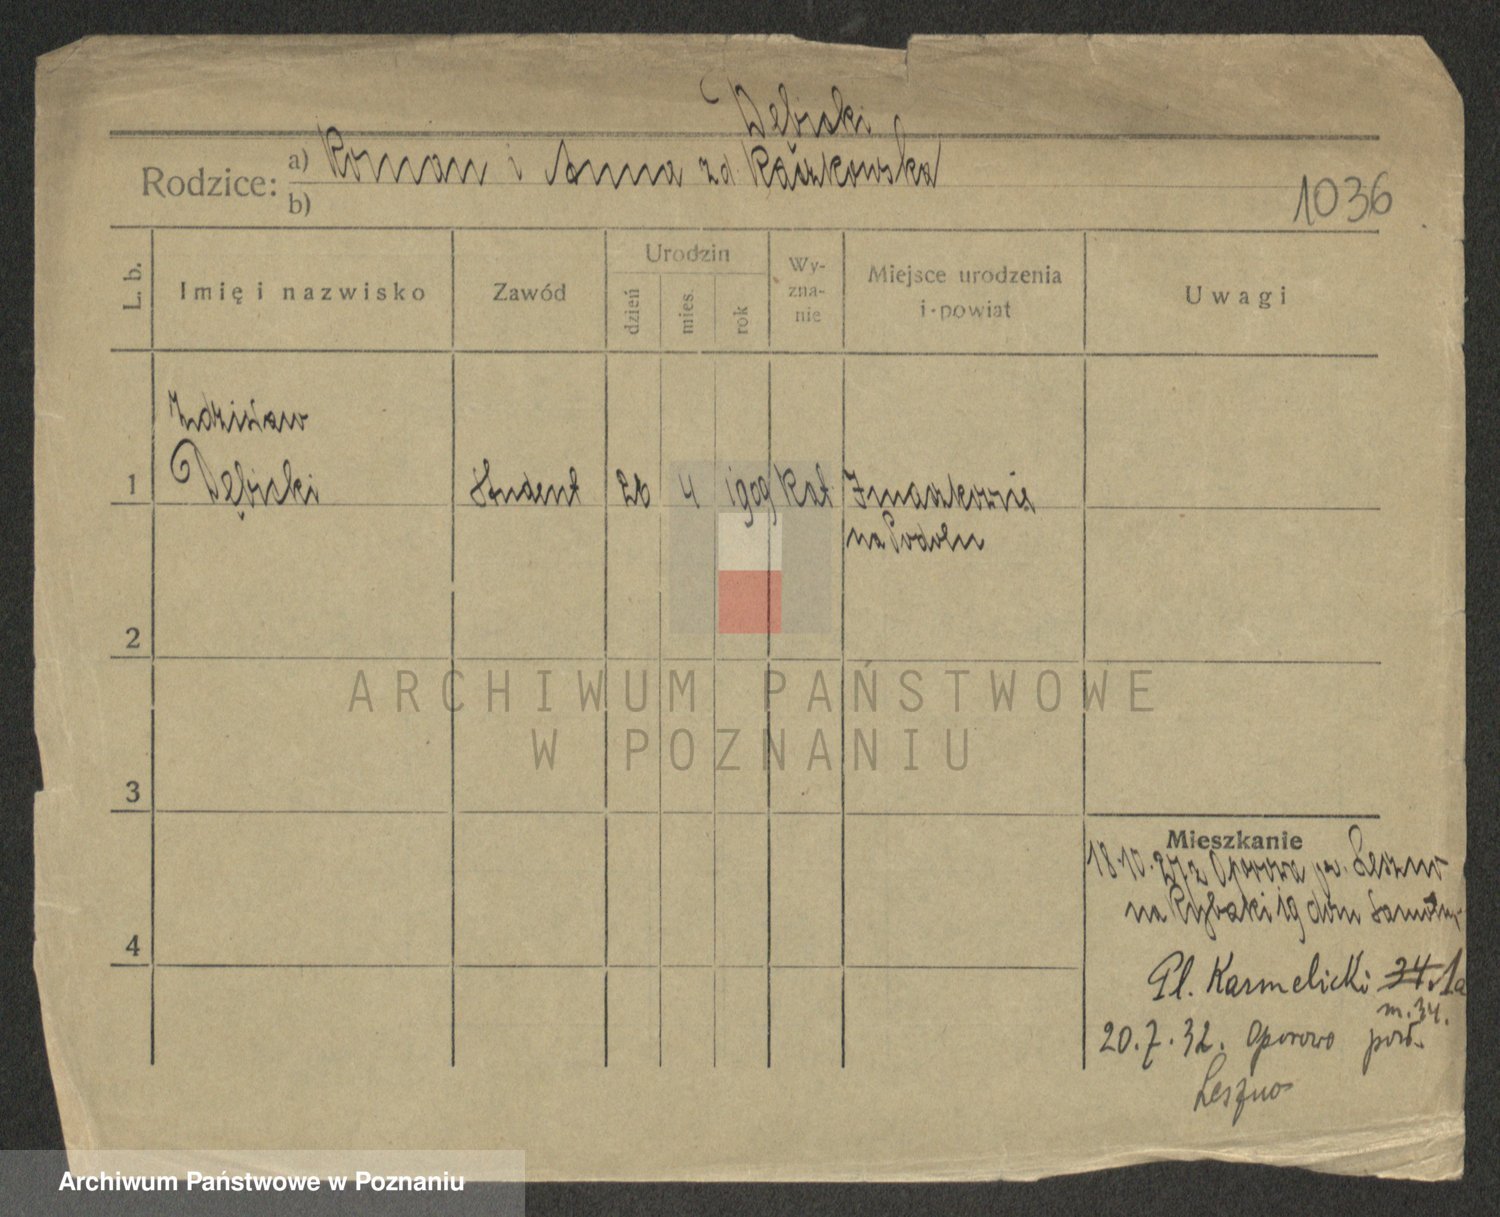 Dębicki
Rodzice: a) Roman i Anna zd Raszkowska
b)
1036
L. b.
Imię i nazwisko
Zawód
Urodzin
dzień
mies.
rok
Wy-
zna-
nie
Miejsce urodzenia
i powiat
Uwagi
Zdzisław
1 Dębicki Student 26 4 1909 kat
na Podolu
2
ARCHIWUM PAŃSTWOWE
W POZNANIU
3
Mieszkanie
18.10.27 z Oporowa pw. Leszno
na Rybaki 19 dom
4
Pl. Karmelicki 34. 1a
m. 34.
20.7.32. Oporowo pow.
Leszno
Archiwum Państwowe w Poznaniu